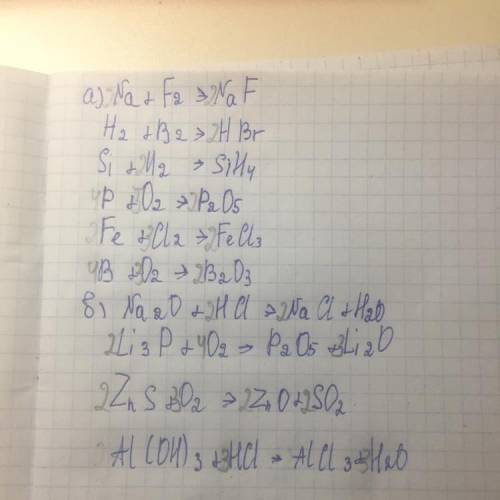 а) 2Na + F2 → 2NaF
H2 + B2 → 2HBr
Si + 2H2 → SiH4
4P + 5O2 → 2P2O5
2Fe + 3Cl2 → 2FeCl3
4B + 3O2 → 2B2O3
б) Na2O + 2HCl → 2NaCl + H2O
2Li3P + 4O2 → P2O5 + 3Li2O
2ZnS + 3O2 → 2ZnO + 2SO2
Al(OH)3 + 3HCl → AlCl3 + 3H2O